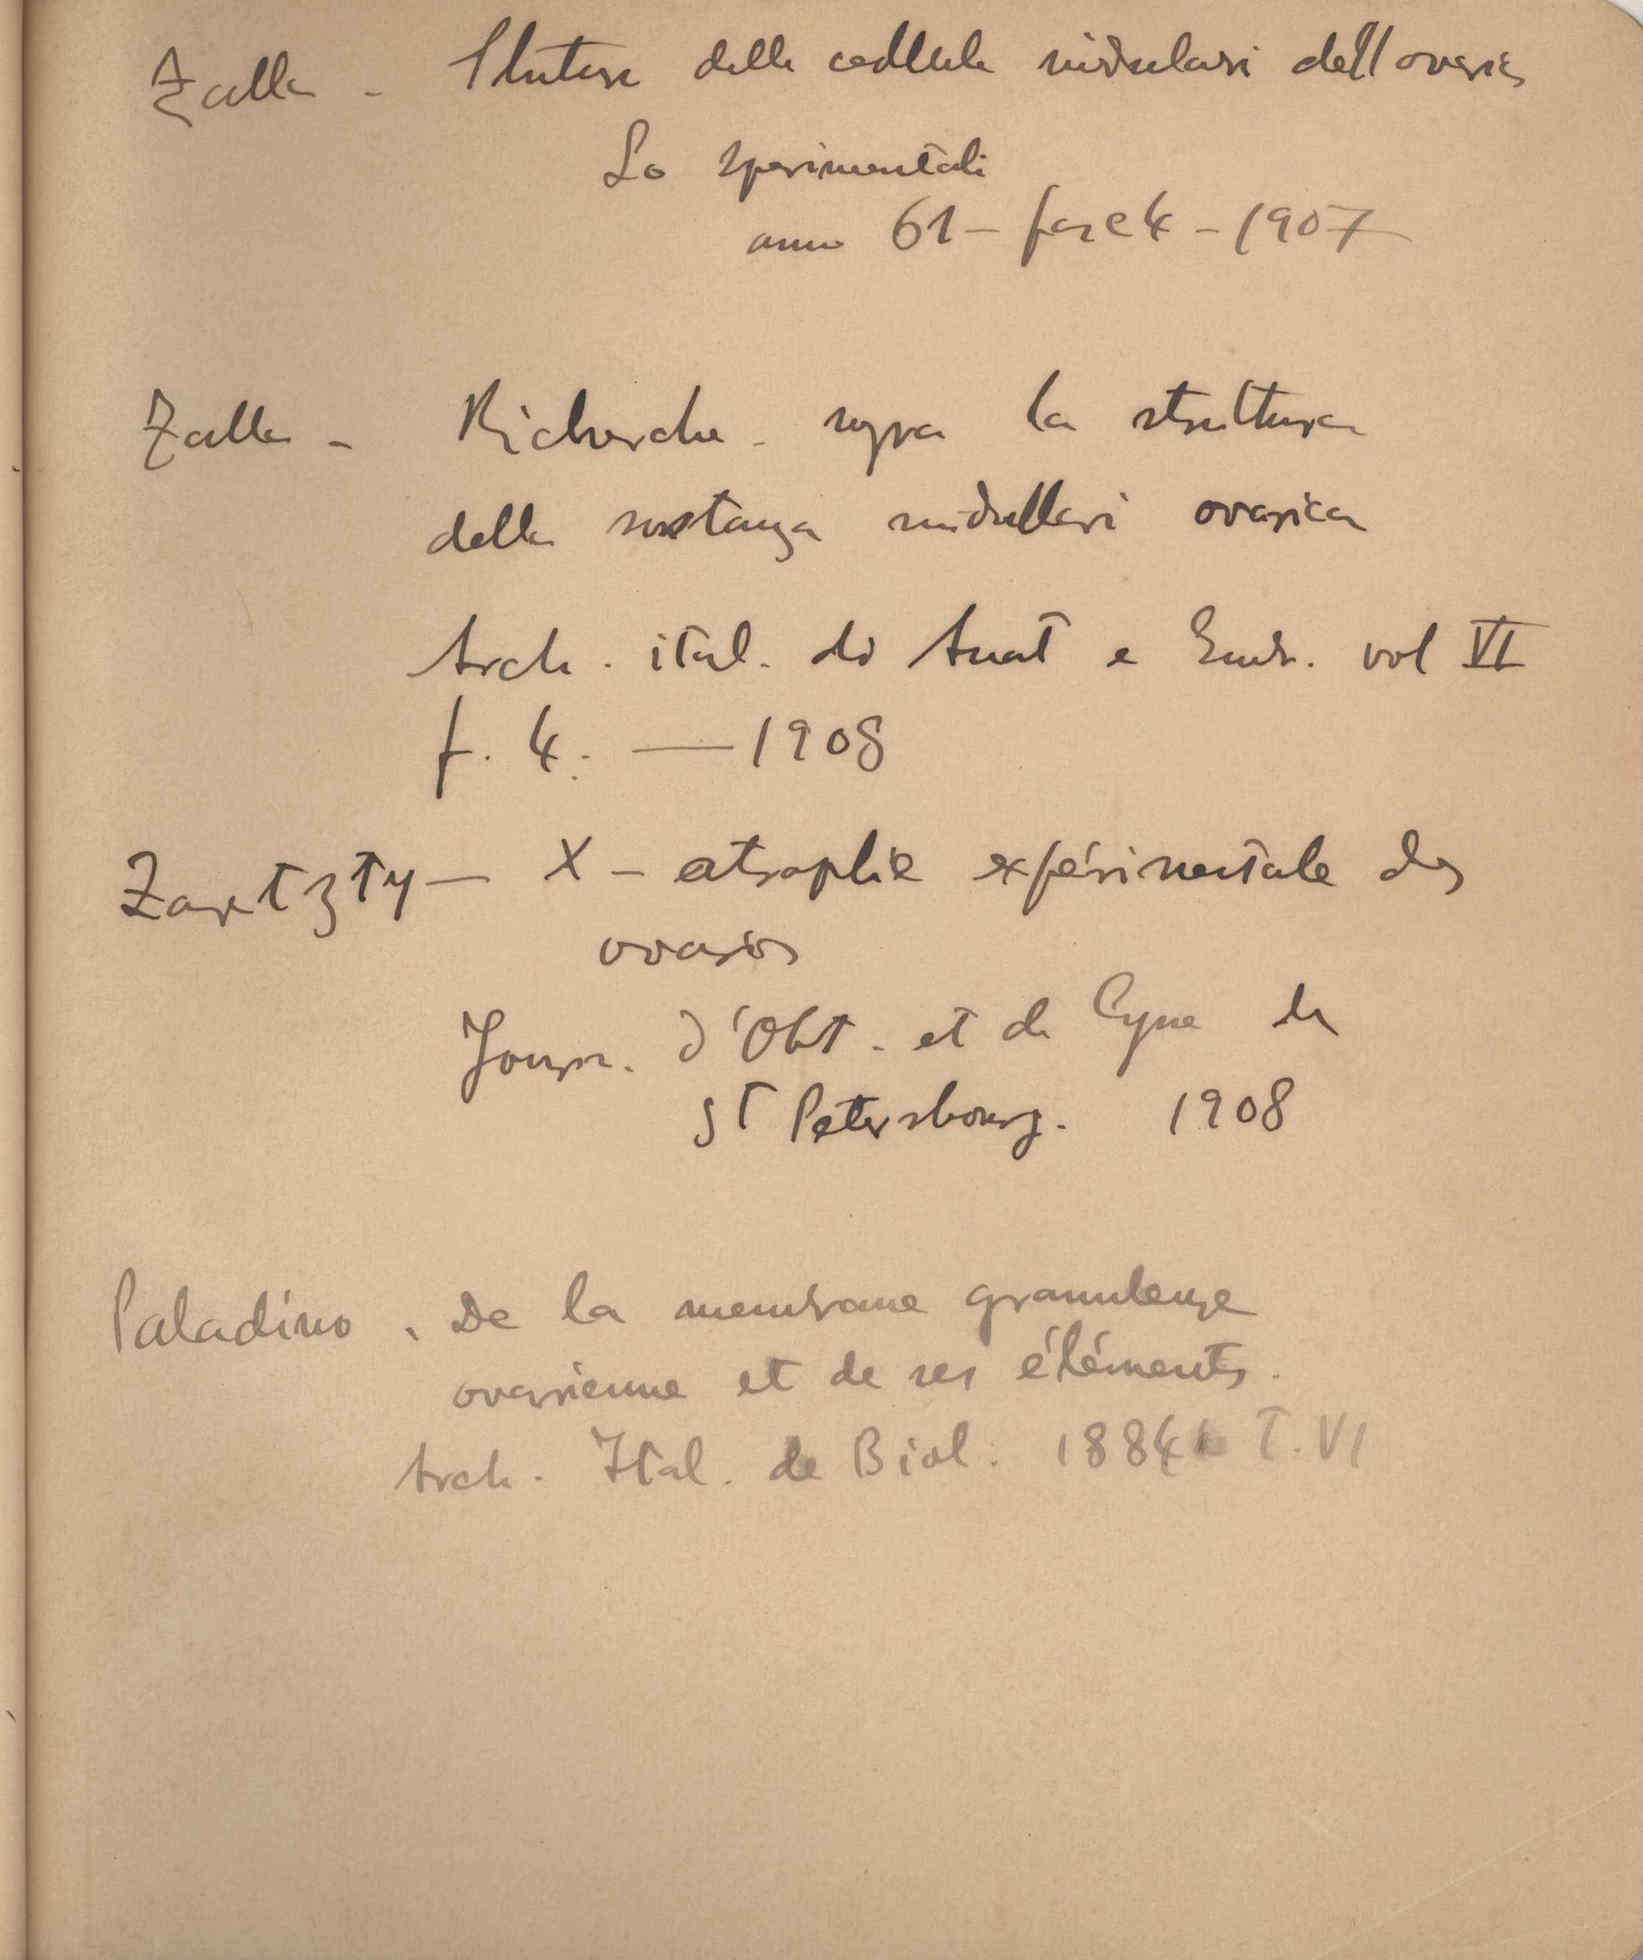 Zalla - Struttura delle cellule midulari dell ovario
Lo sperimentali
anno 61 - fasc 4 - 1907
Zalla - Richerche sopra la struttura
della sostanza midullari ovarica
Arch. ital. di Anat e Embr. vol VI
f. 4. — 1908
Zartzty — X - atrophie expérimentale des
ovaires
Journ. d'Obst. et de Gyne de
St Petersbourg. 1908
Paladino. De la membrane granuleuse
ovarienne et de ses éléments.
Arch. Ital. de Biol. 1884 T. VI